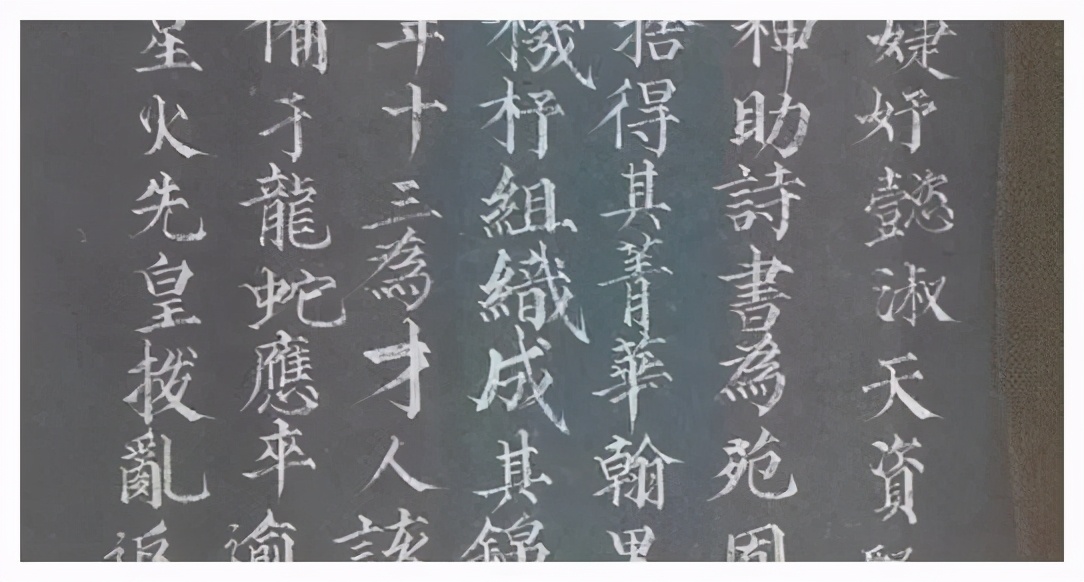 婕妤懿淑天資
神助詩書為苑固
捨得其菁華翰墨
機杼組織成其錦
年十三為才人該
備矛龍蛇應卒逾
星火先皇撥亂返